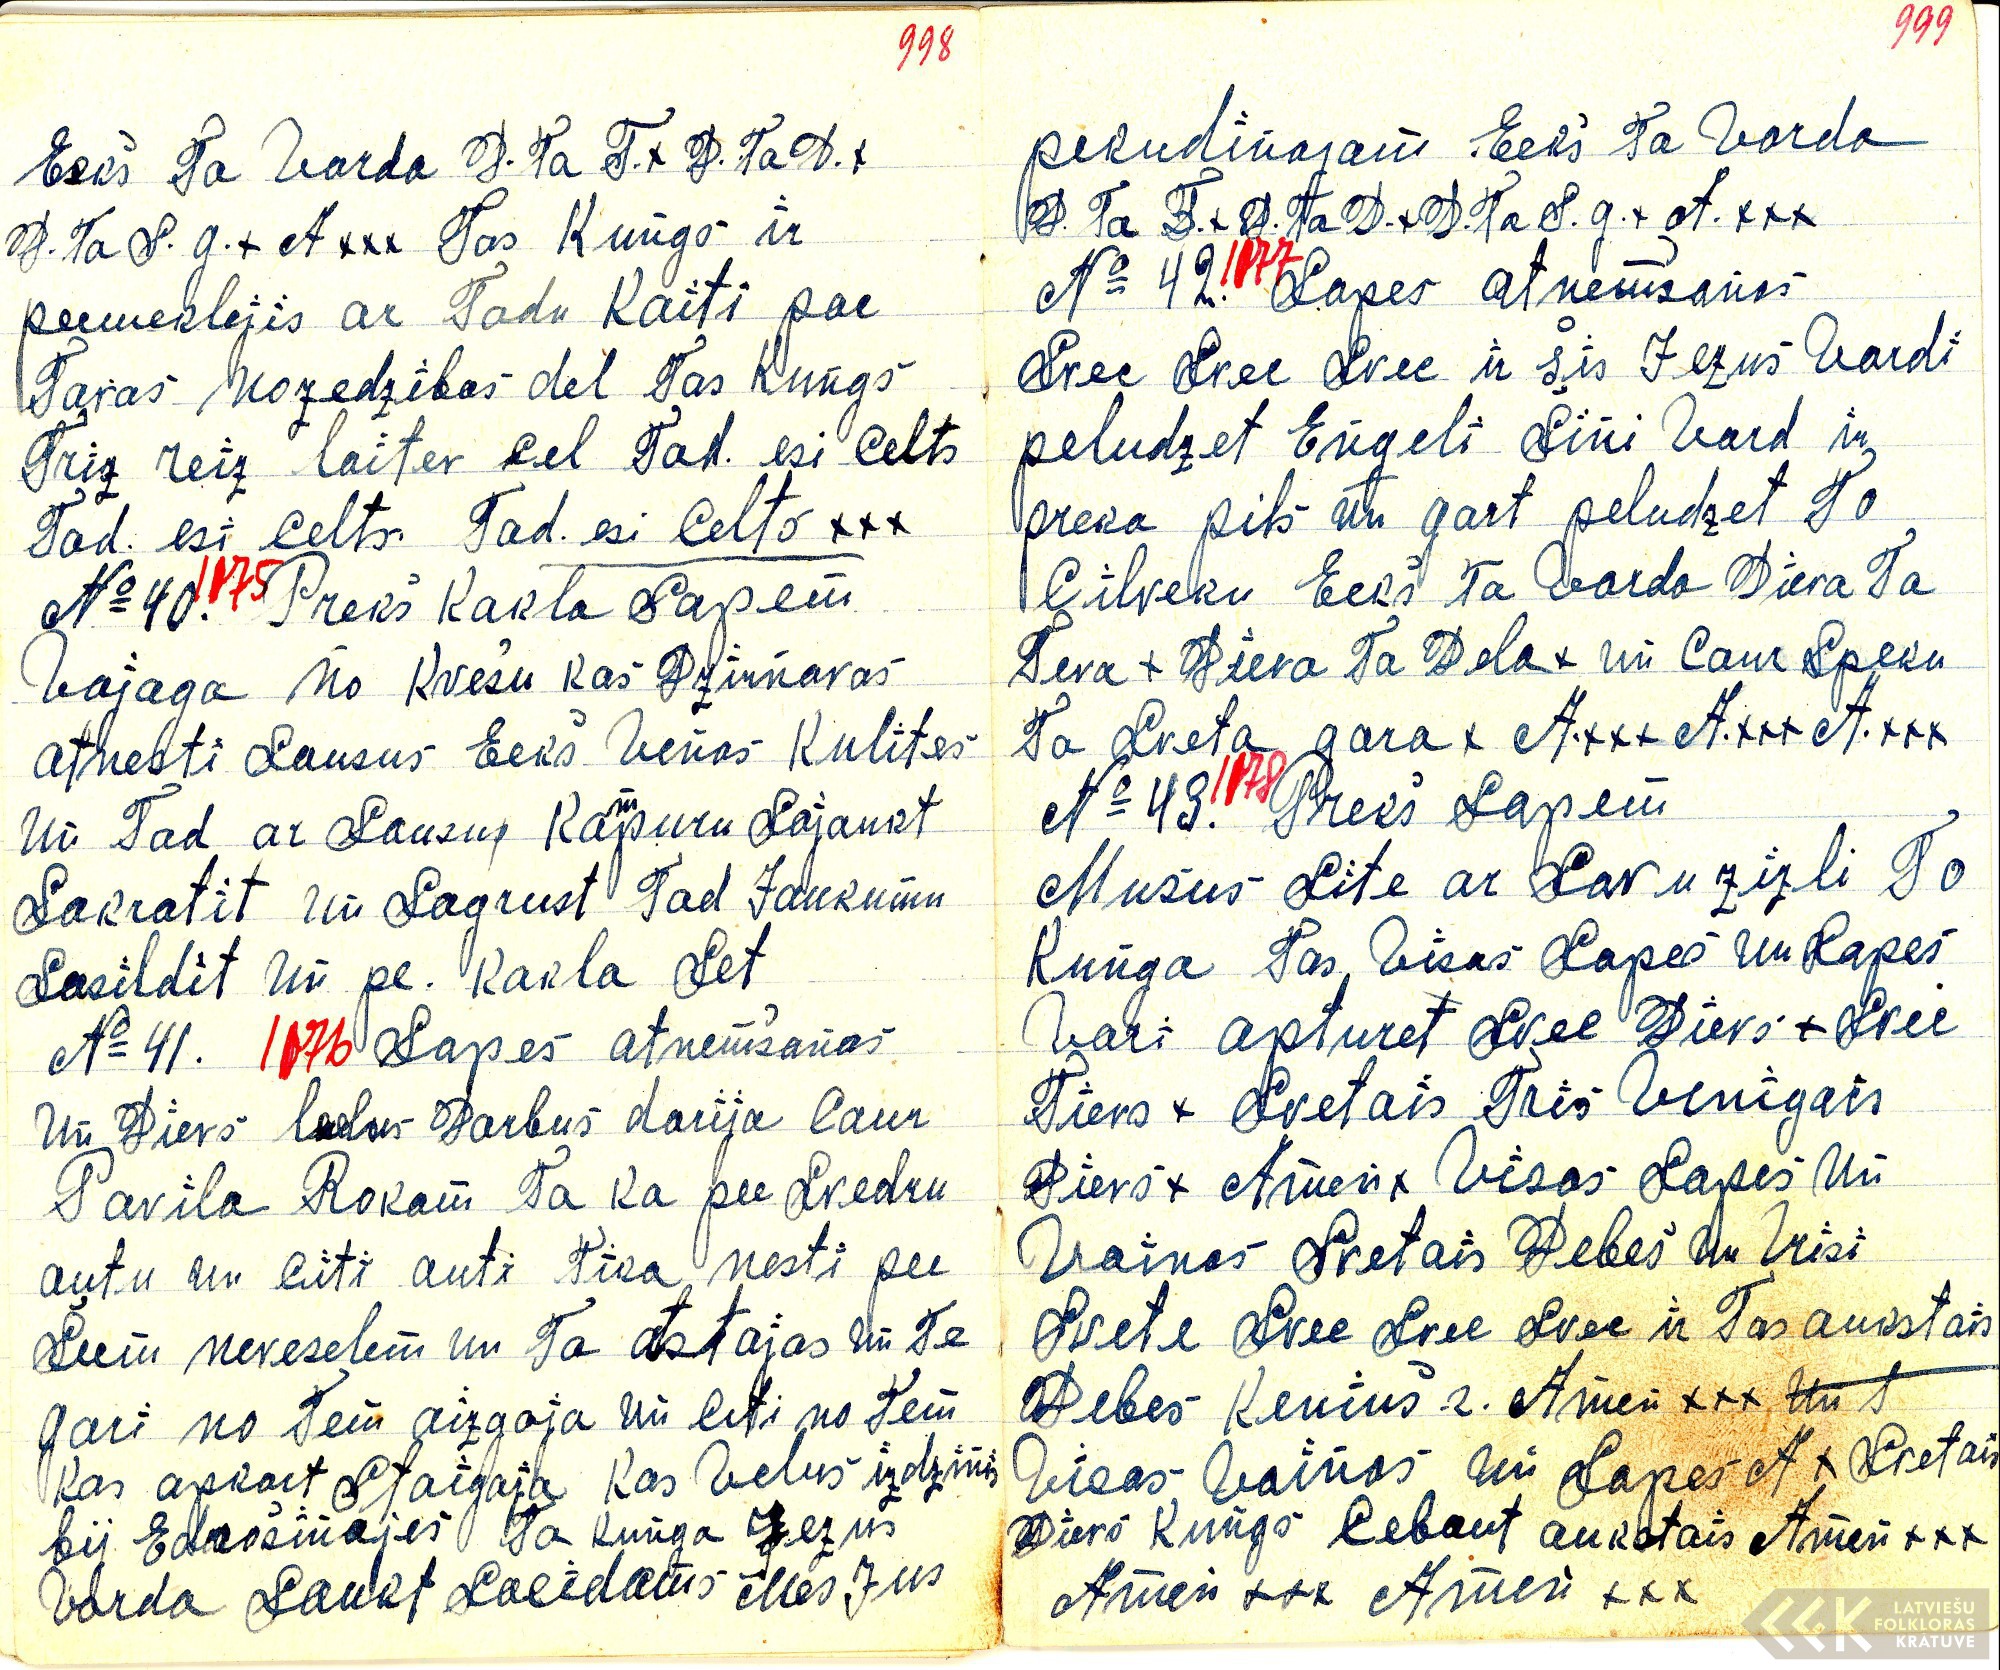 998
Eekš Ta Varda D. Ta T. x D. Ta D. x
D. Ta S. g. x A xxx Tas Kungs ir
peemeklejis ar Tadu Kaiti par
Tavas nozedzibas del Tas Kungs
Triz reiz laiter cel Tad. esi Celts
Tad. esi Celts. Tad. esi Celts xxx
№ 40. 1075 Preks Kakla Sapem
Vajaga no Kvešu kas Dzirnavas
atnesti Sausus Eekš Venas Kulites
un Tad ar Sausu Kampuru Sajaukt
Sakratit un Sagrust Tad Jaukumu
Sasildit un pe. Kakla Set
№ 41. 1076 Sapes atnemšanas
un Dievs ladus Darbus darija Caur
Pavila Rokam Ta ka pee Svedru
autu un Citi auti Tika nesti pee
Seem neveselem un Ta atstajas un Te
gari no Tem aizgaja un Citi no Tem
kas apkart Staigaja Kas Velus izdzinis
bij Edrošinajes Ta kunga Jezus
Varda Saukt Sacidams Mes Jus
999
pekudinajam Eekš Ta Varda
D. Ta T. x D. Ta D. x D. Ta S. g. x A. xxx
№ 42. 1077 Sapes atnemšanas
Svee Svee Svee ir šis Jezus Vardi
peludzet Engeli Sini Vard ir
preka pils un gart peludzet To
Cilveku Eekš Ta Varda Dieva Ta
Teva x Dieva Ta Dela x un Caur Speku
Ta Sveta gara x A. xxx A. xxx A. xxx
№ 43. 1078 Prekš Sapem
Musus Site ar Savu zizli To
Kunga Tas Visas Sapes un Sapes
Vari apturet Svee Dievs x Svee
Tievs x Svetais Tris Venigais
Dievs x Amen x Visas Sapes un
Vainas Svetais Debeš un Visi
Svete Svee Svee Svee ir Tas aukstais
Debes Keninš 2. Amen xxx un
Visas Vainas un Sapes A x Svetais
Dievs Kungs Cebaut aukstais Amen xxx
Amen xxx Amen xxx
LATVIEŠU
FOLKLORAS
KRĀTUVE